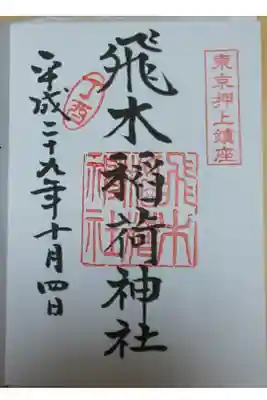 東京押上鎮座
飛木稲荷神社
飛木
稲荷
神社
丁酉
平成二十九年十月四日